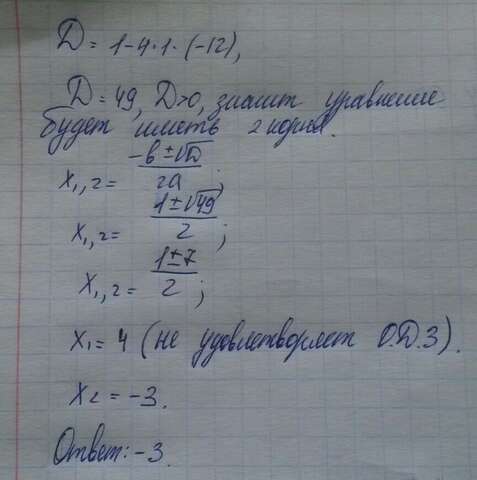 D = 1-4·1·(-12),
D = 49, D>0, значит уравнение
будет иметь 2 корня.
x₁,₂ = (-b±√D)/2a;
x₁,₂ = (1±√49)/2;
x₁,₂ = (1±7)/2;
x₁ = 4 (не удовлетворяет О.Д.З).
x₂ = -3.
Ответ: -3.